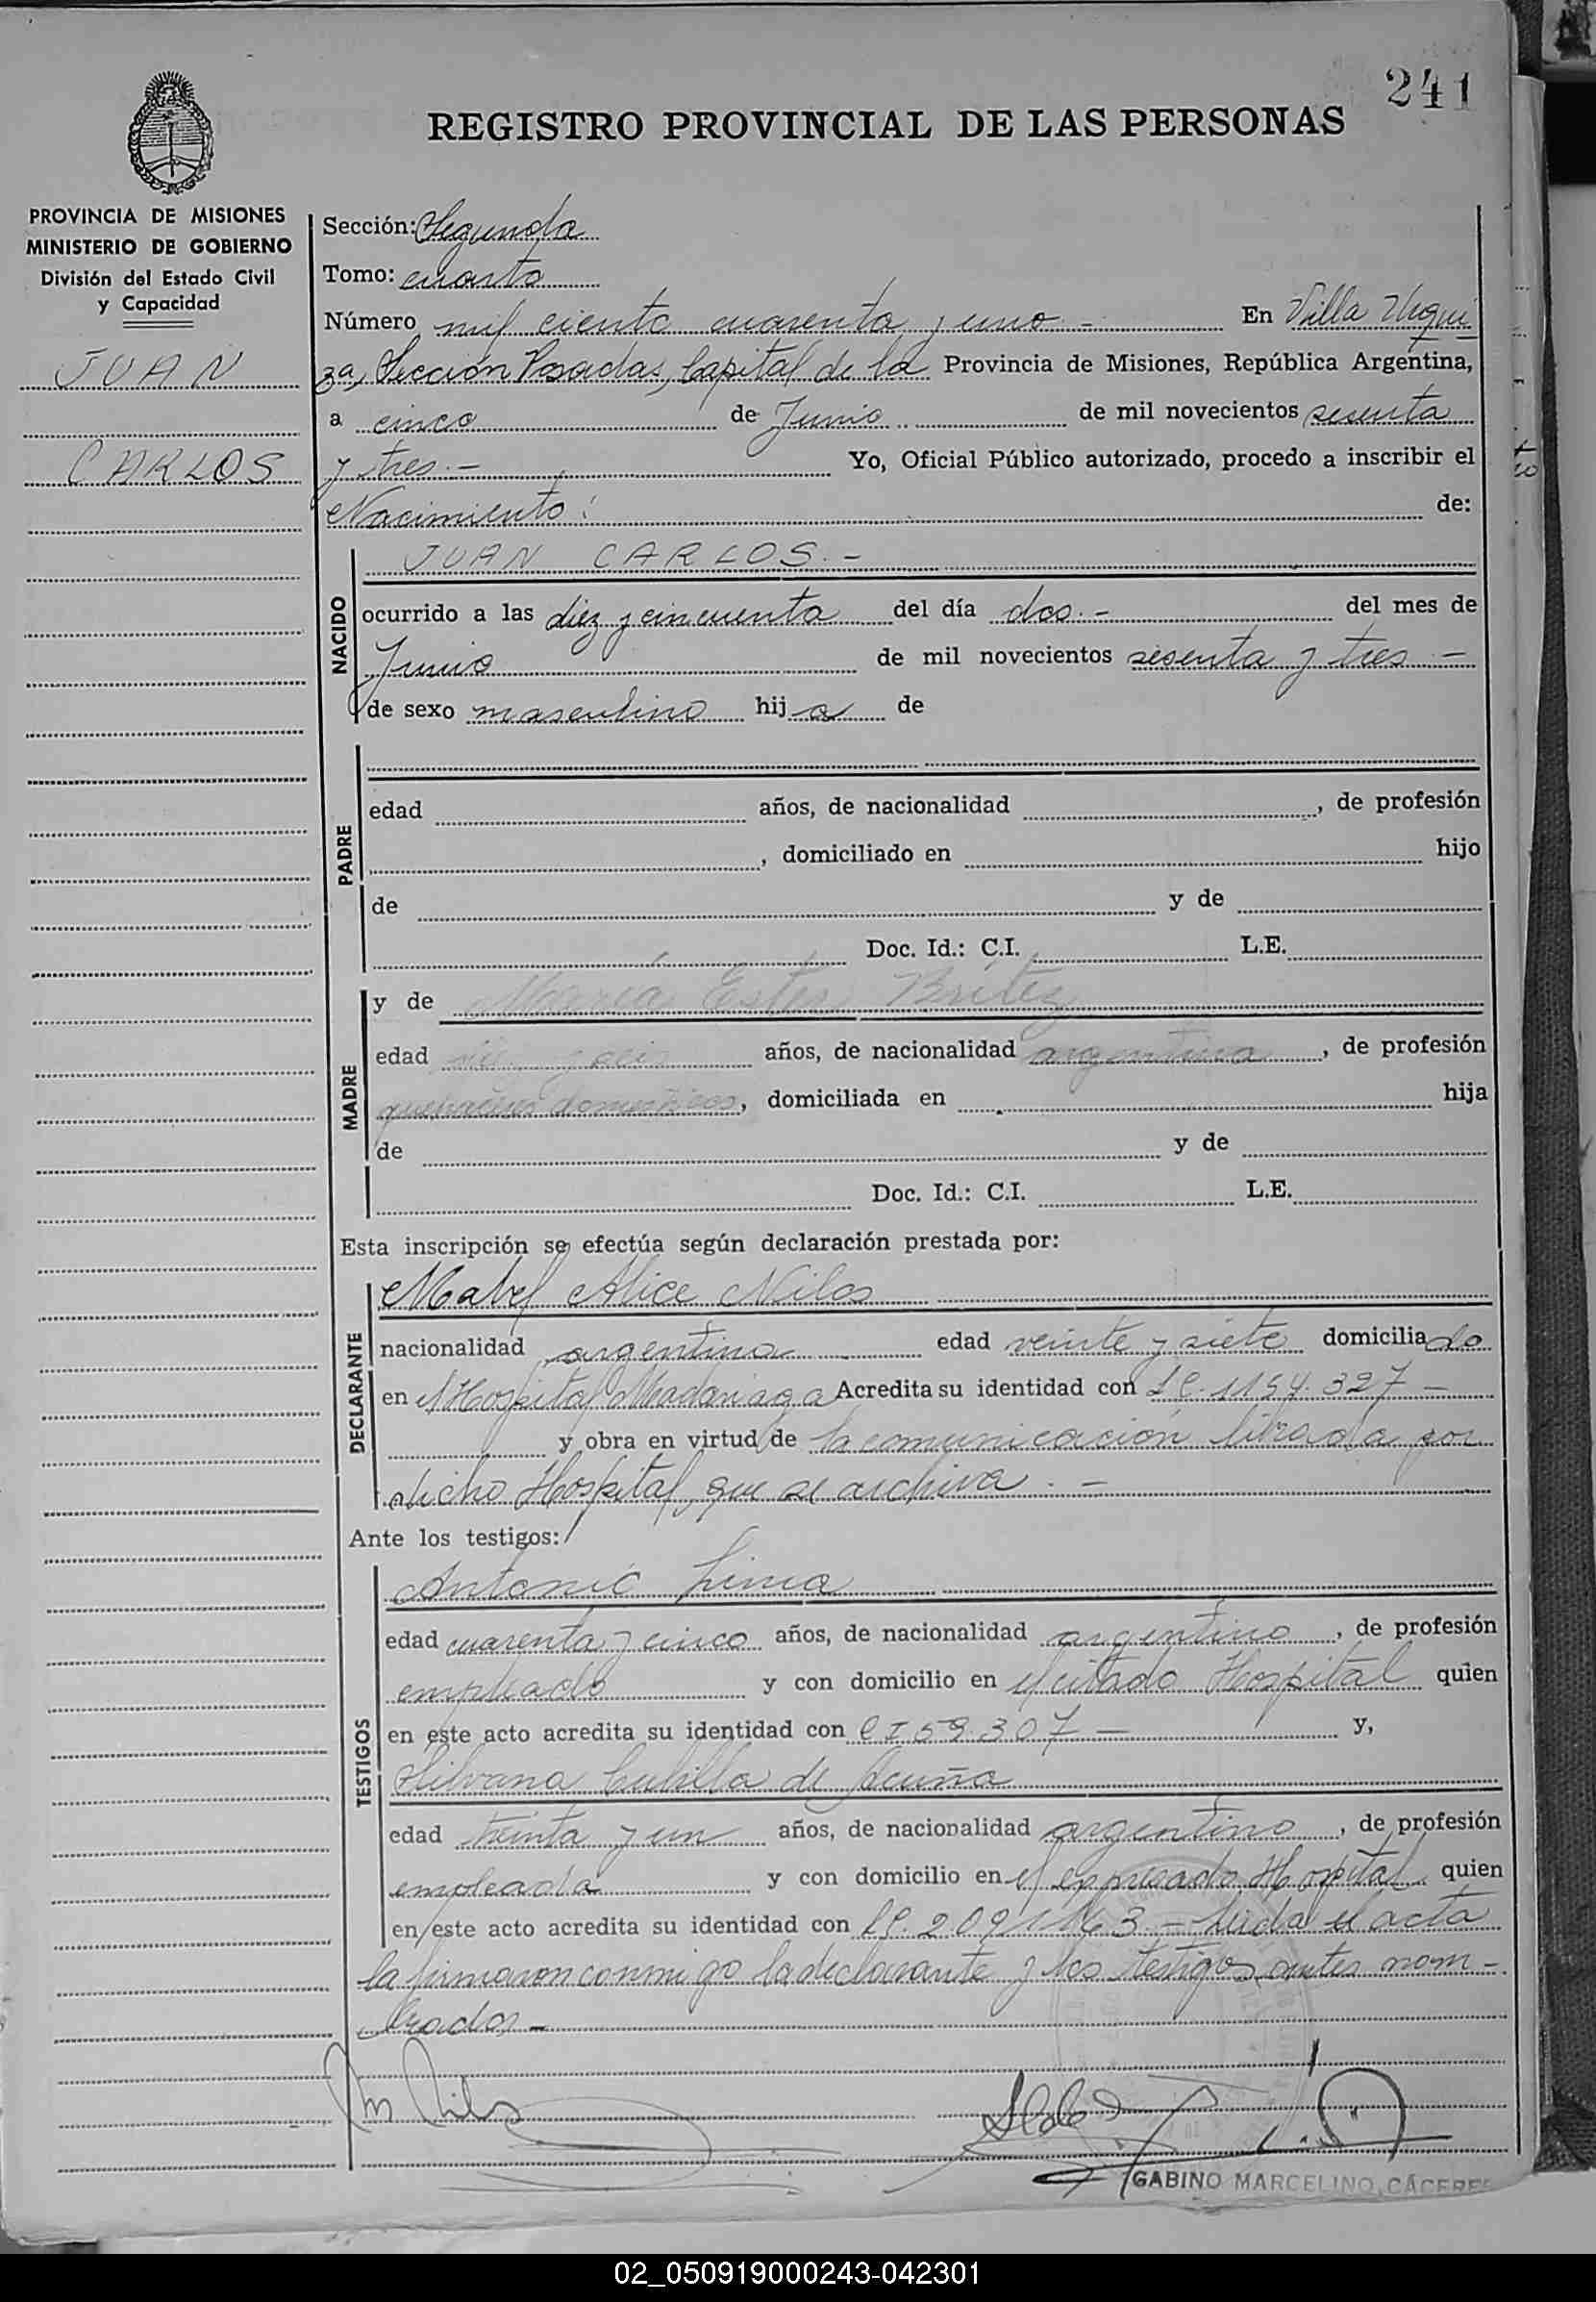 241
REGISTRO PROVINCIAL DE LAS PERSONAS
PROVINCIA DE MISIONES
MINISTERIO DE GOBIERNO
División del Estado Civil
y Capacidad
JUAN
CARLOS
Sección: Segunda
Tomo: cuarto
Número mil ciento cuarenta y uno.- En Villa Urqui
za, Sección Posadas, Capital de la Provincia de Misiones, República Argentina,
a cinco de Junio de mil novecientos sesenta
y tres.- Yo, Oficial Público autorizado, procedo a inscribir el
Nacimiento: de:
NACIDO
JUAN CARLOS.-
ocurrido a las diez y cincuenta del día dos.- del mes de
Junio de mil novecientos sesenta y tres.-
de sexo masculino hij o de
PADRE
edad años, de nacionalidad , de profesión
, domiciliado en hijo
de y de
Doc. Id.: C.I. L.E.
MADRE
y de María Ester Britez
edad años, de nacionalidad argentina, de profesión
quehaceres domésticos, domiciliada en hija
de y de
Doc. Id.: C.I. L.E.
Esta inscripción se efectúa según declaración prestada por:
DECLARANTE
Mabel Alice
nacionalidad argentina edad veinte y siete domicilia do
en Hospital Madariaga Acredita su identidad con 1154.327-
y obra en virtud de la comunicación librada por
dicho Hospital, que se archiva.-
Ante los testigos:
TESTIGOS
Antonio Lima
edad cuarenta y cinco años, de nacionalidad argentino, de profesión
empleado y con domicilio en el citado Hospital quien
en este acto acredita su identidad con CI 59.307- y,
de Acuña
edad treinta y un años, de nacionalidad argentino, de profesión
empleada y con domicilio en el expresado Hospital quien
en este acto acredita su identidad con Leída el acta
la firmaron conmigo la declarante y los testigos antes nom-
brados-
GABINO MARCELINO CÁCERES
02_050919000243-042301